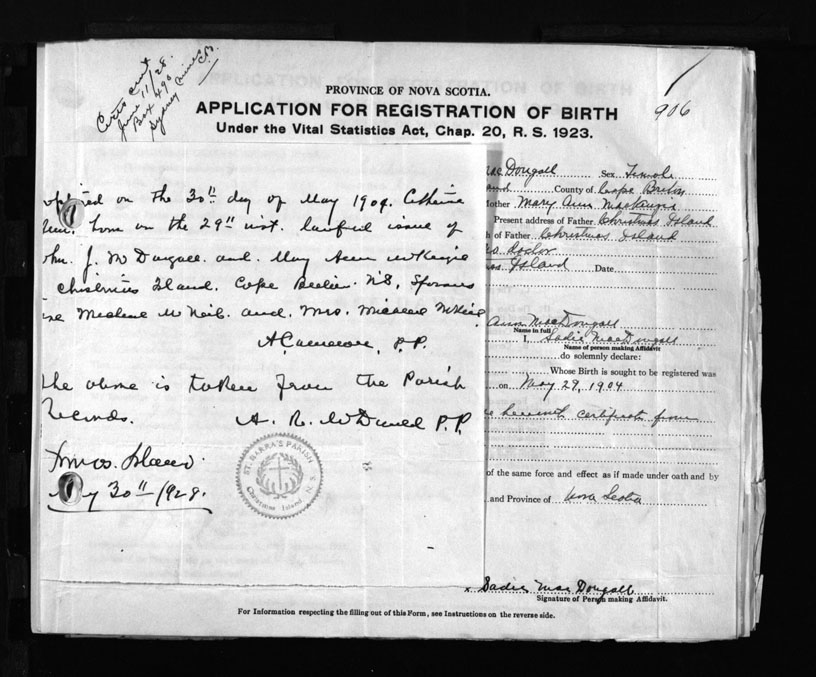 Certs sent
June 11/28.
Box 490
Sydney Mines C.B.
PROVINCE OF NOVA SCOTIA.
APPLICATION FOR REGISTRATION OF BIRTH
Under the Vital Statistics Act, Chap. 20, R. S. 1923.
906
on the 30th day of May 1904. Catherine
born on the 29th inst. lawful issue of
J. McDougall. and. Mary Ann McKenzie
Island. Cape Breton. N.S. Sponsors
McNeil. and. Mrs. Michael McNeil
P.P.
the above is taken from the Parish
Records.
A. R. McDonald P.P.
Xmas. Island.
30th 1928.
ST. BARRA'S PARISH
Christmas Island N. S.
MacDougall Sex Female
County of Cape Breton
Mother Mary Ann MacKenzie
Present address of Father Christmas Island
of Father Christmas Island
no doctor
Island Date
Ann MacDougall
Name in full
I, Sadie MacDougall
Name of person making Affidavit
do solemnly declare:
Whose Birth is sought to be registered was
on May 29, 1904
herewith certificate from
of the same force and effect as if made under oath and by
and Province of Nova Scotia
x Sadie MacDougall
Signature of Person making Affidavit.
For Information respecting the filling out of this Form, see Instructions on the reverse side.